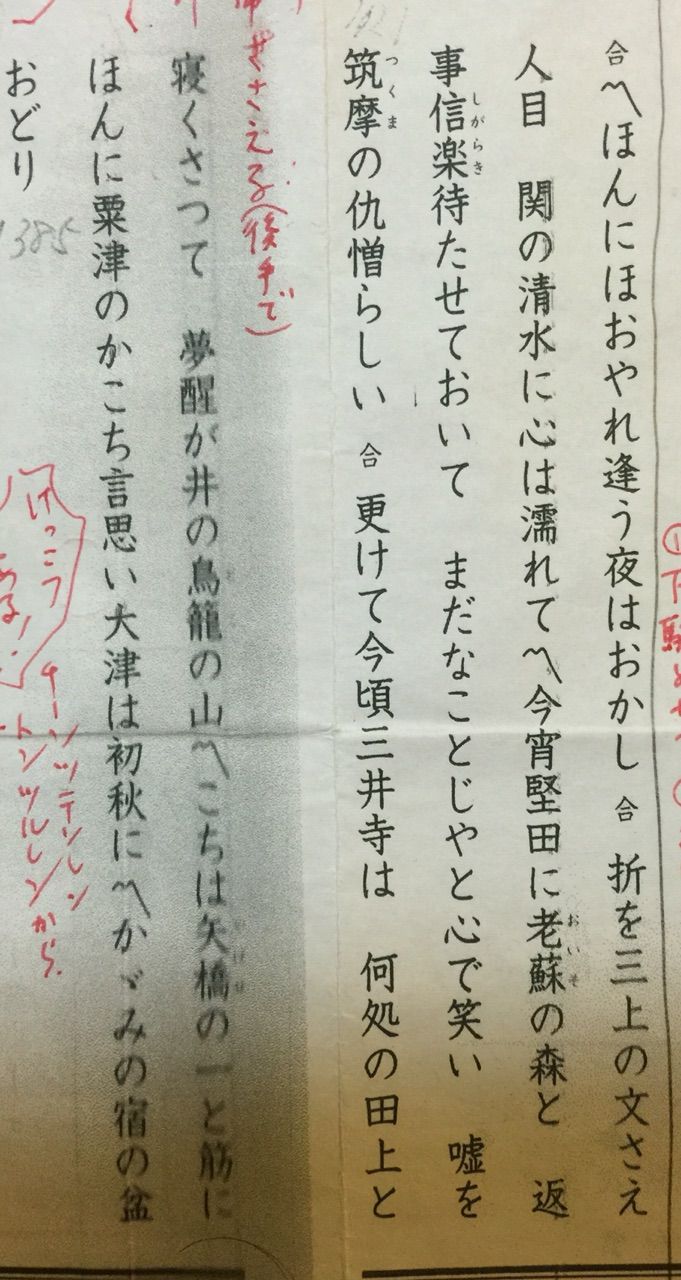 合〽ほんにほおやれ逢う夜はおかし 合 折を三上の文さえ
人目 関の清水に心は濡れて〽今宵堅田に老蘇の森と 返
おいそ
事信楽待たせておいて まだなことじやと心で笑い 嘘を
しがらき
筑摩の仇憎らしい 合 更けて今頃三井寺は 何処の田上と
つくま
さえる(後手で)
寝くさつて 夢醒が井の鳥籠の山〽こちは矢橋の一と筋に
ほんに粟津のかこち言思い大津は初秋に〽かゞみの宿の盆
おどり
385
けっこう
ある!
チーンツテツレン
トンツルレンから